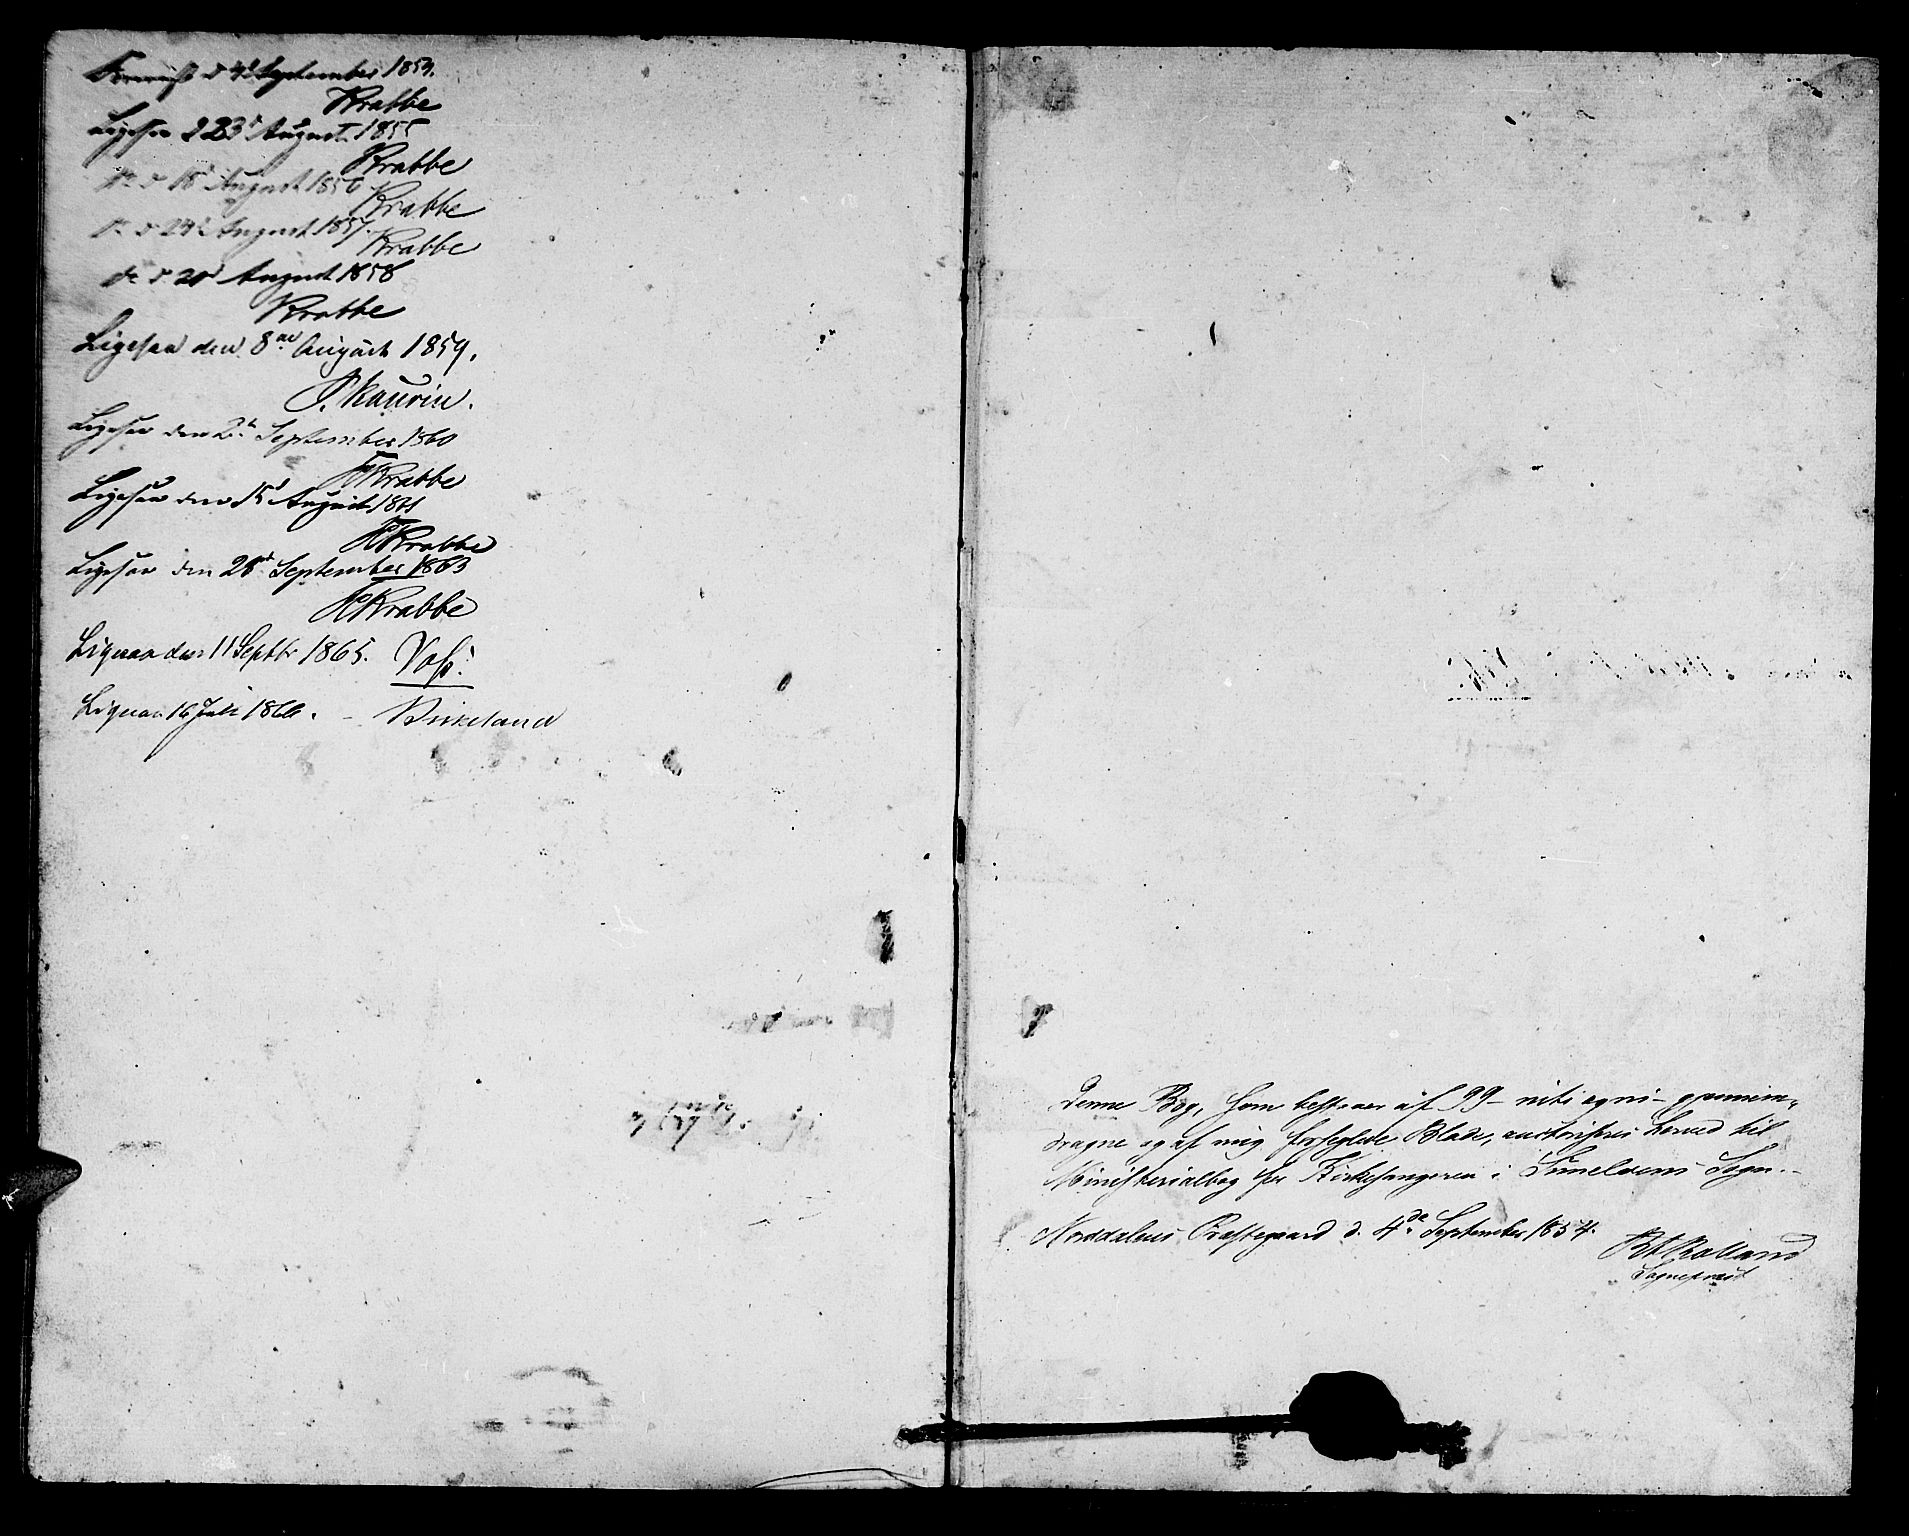 d 4d September 1854.
Krabbe
Ligesaa d 23d August 1855
Krabbe
do d 18d August 1856
Krabbe
do d 24d August 1857.
Krabbe
do d 20d August 1858
Krabbe
Ligesaa den 8de August 1859.
P. Kaurin.
Ligesaa den 2den September 1860
HKrabbe
Ligesaa den 15d August 1861
HKrabbe
Ligesaa den 28d September 1863
HKrabbe
Ligesaa den 11 Septbr 1865. Voss.
Ligesaa 16 Juli 1866. - Birkeland
Denne Bog, som bestaaer af 99 - niti og ni - gjennem-
dragne og af mig forseglede Blade, authoriseres herved til
Ministerialbog for Kirkesangeren i Sunelvens Sogn.-
Norddalens Præstegaard d. 4de September 1854.
Rolland
Sognepræst